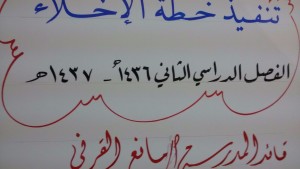 تنفيذ خطة الإخلاء
الفصل الدراسي الثاني ١٤٣٦هـ - ١٤٣٧هـ
قائد المدرسة / مانع القرفي